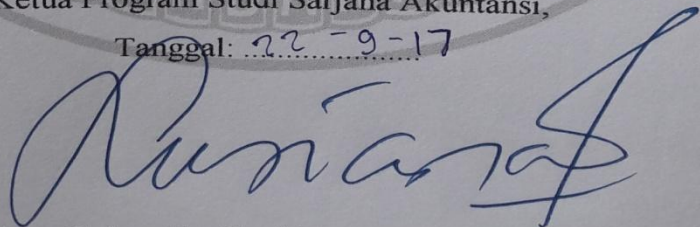 Ketua Program Studi Sarjana Akuntansi,
Tanggal: 22 - 9 - 17